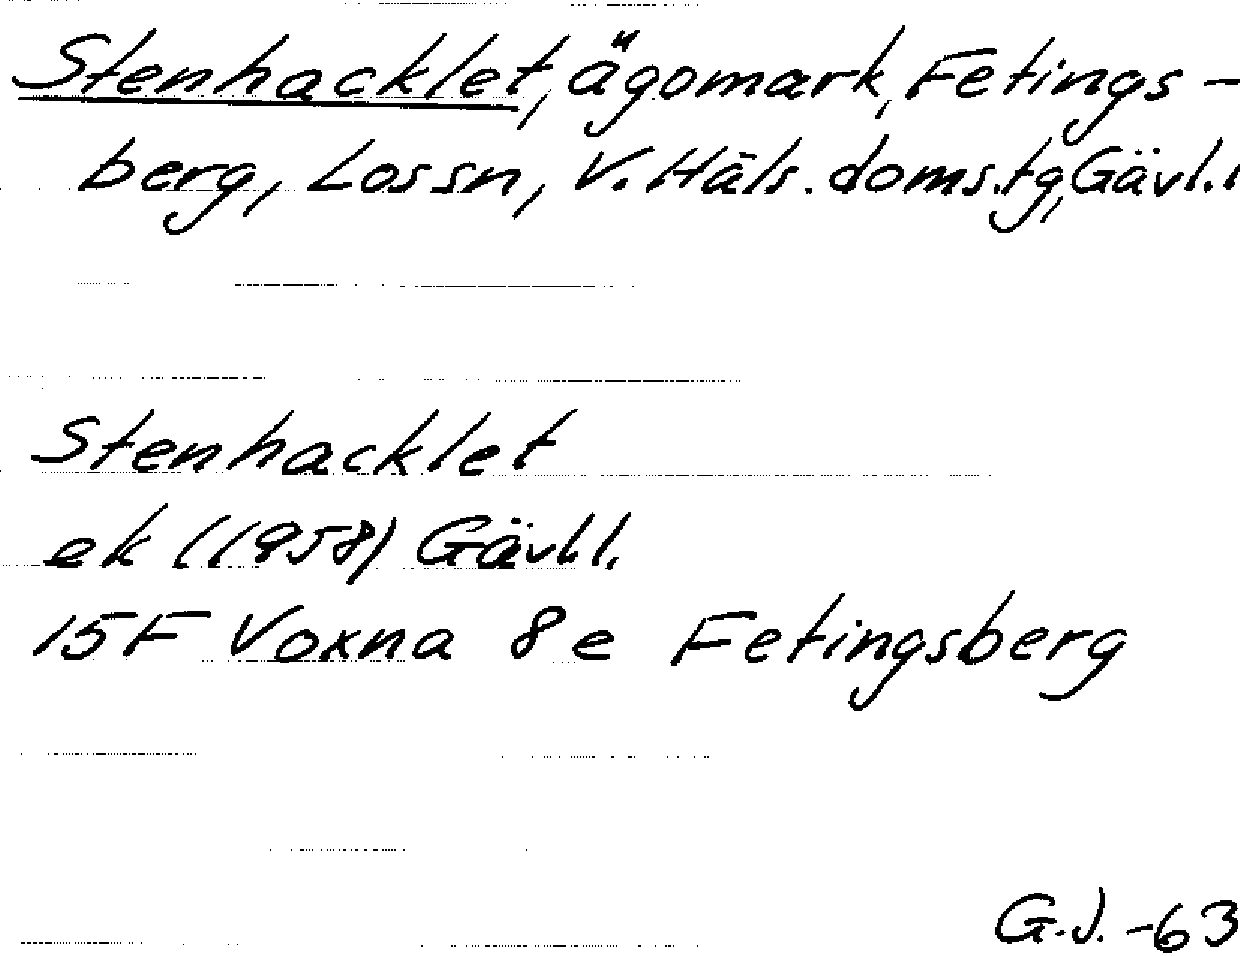 Stenhacklet, ägomark, Fetings-
berg, Lossn, V. Häls. doms.tg, Gävl.l
Stenhacklet
ek (1958) Gävl.l.
15F Voxna 8e Fetingsberg
G.J. -63